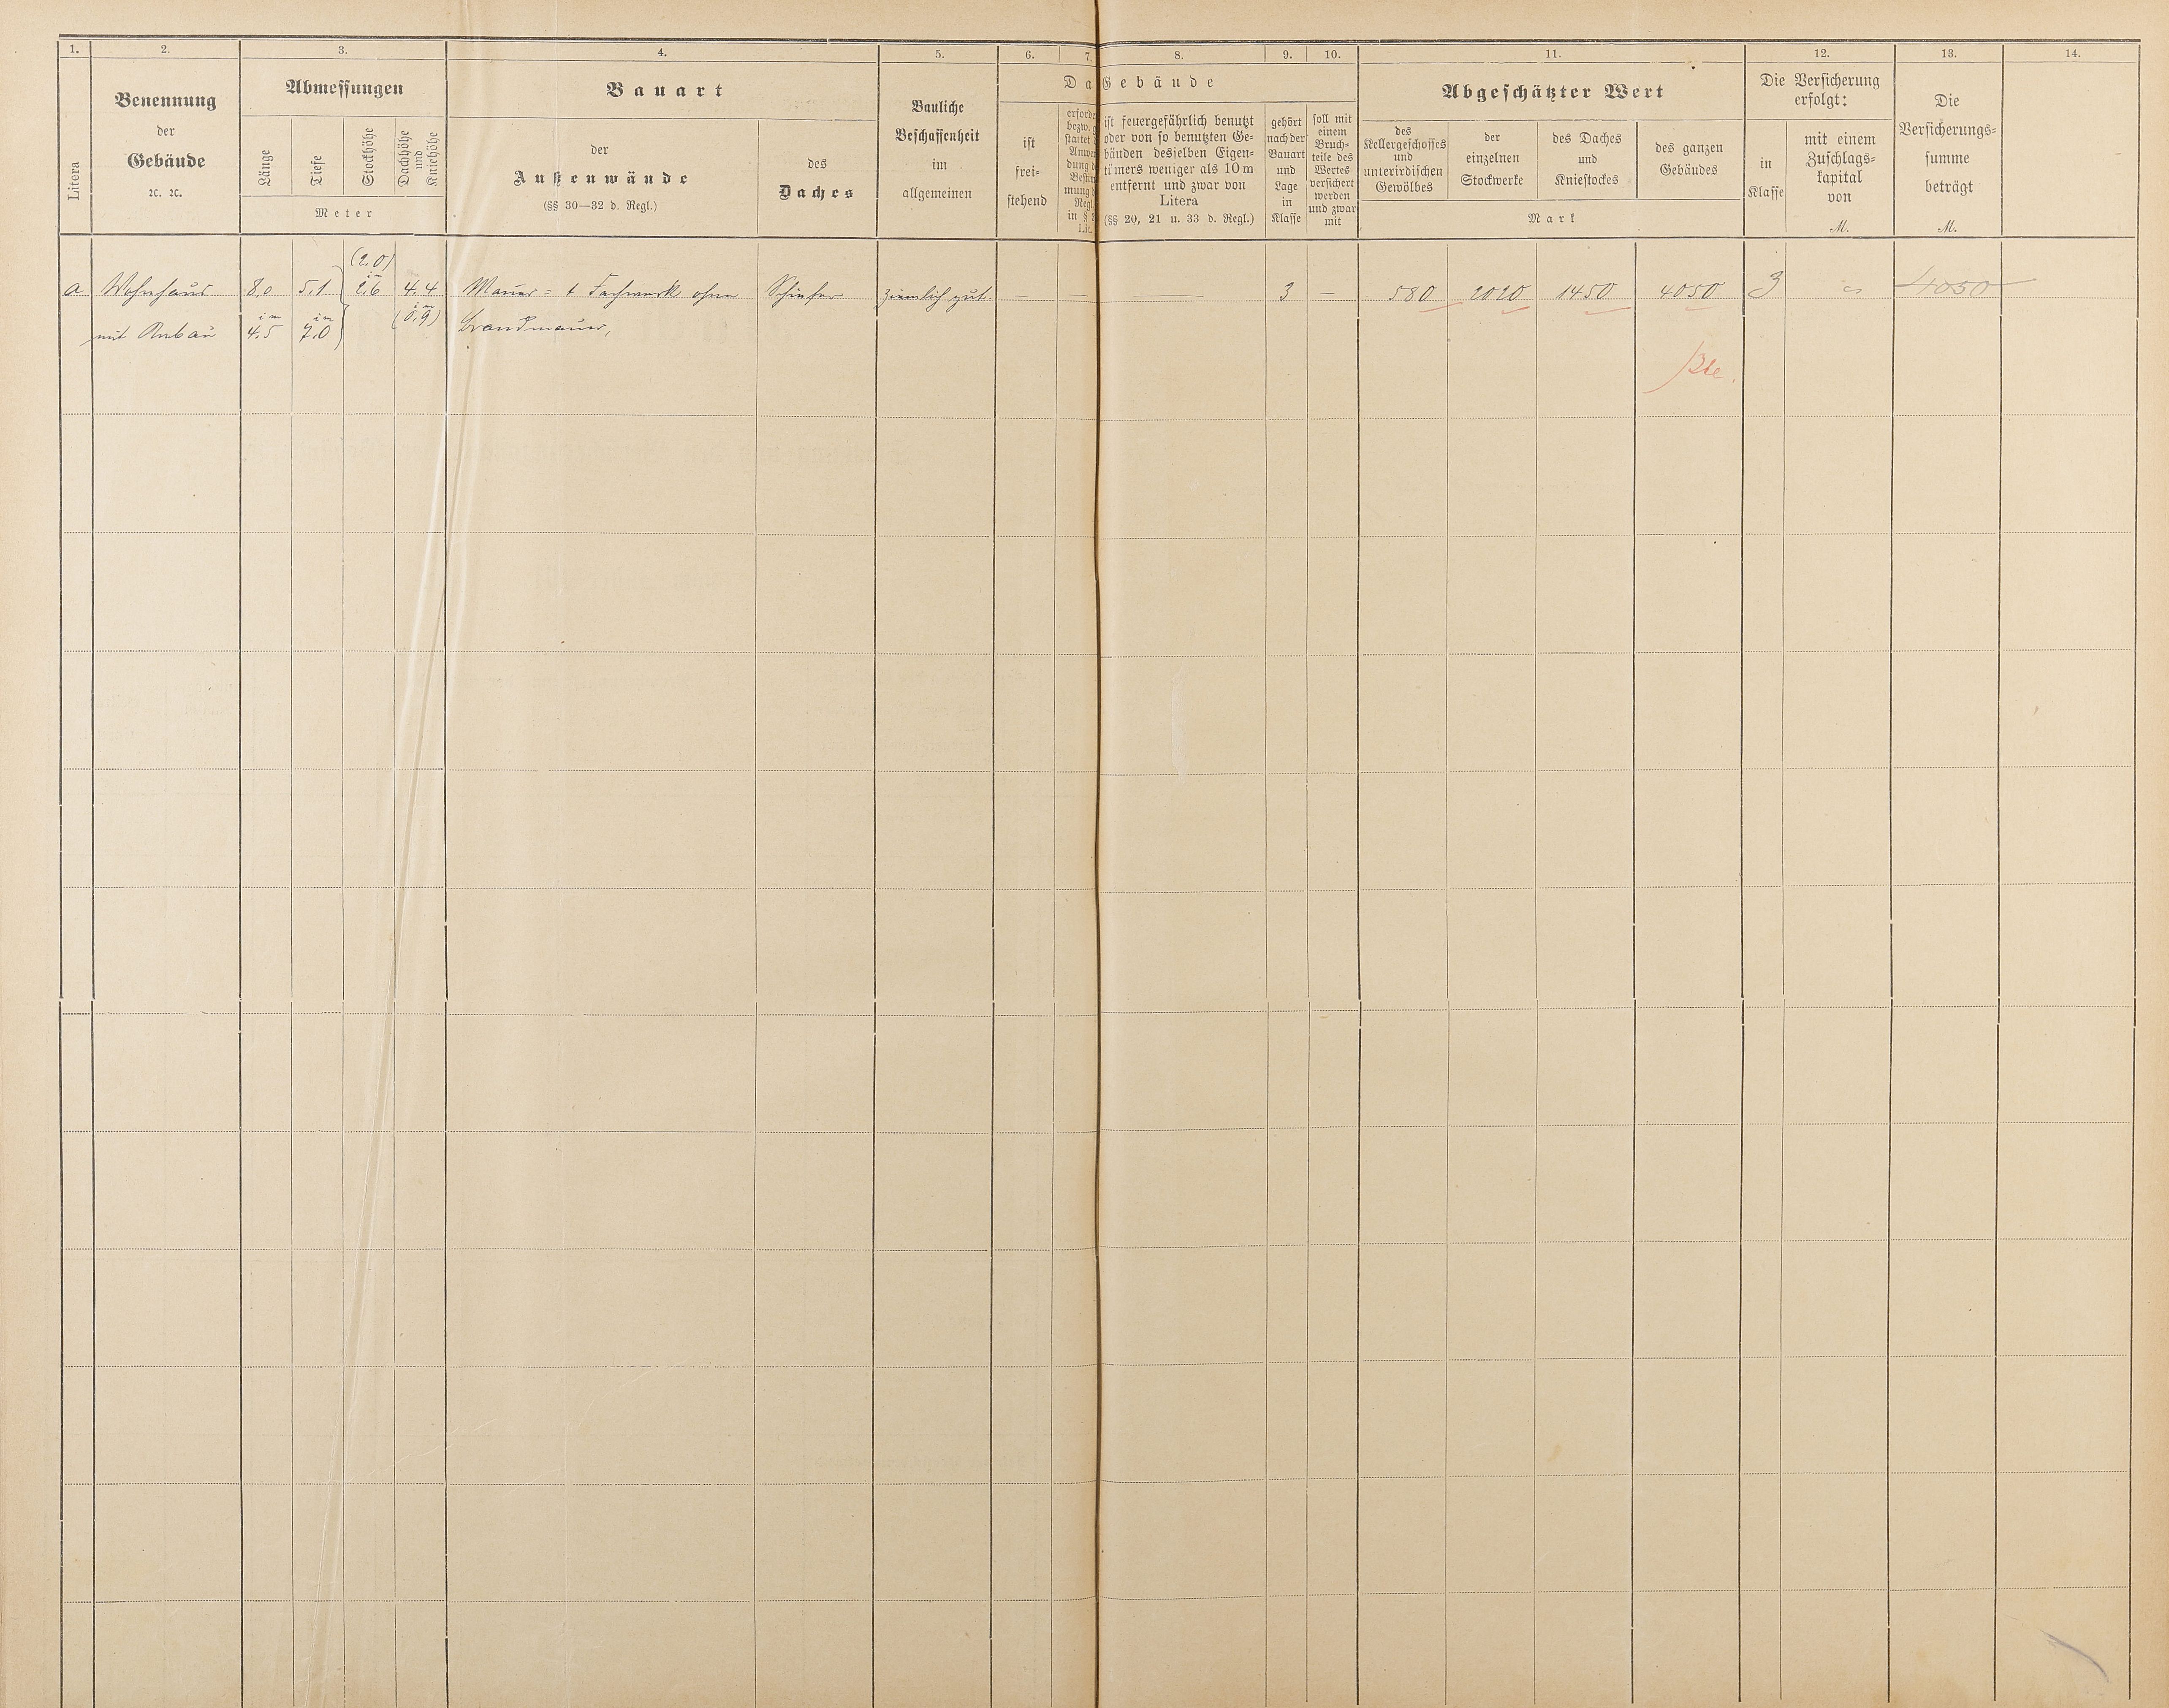 1. 2. 3. 4. 5. 6. 7. 8. 9. 10. 11. 12. 13. 14.
Litera
Benennung
der
Gebäude
ꝛc. ꝛc.
Abmessungen
Länge
Tiefe
Stockhöhe
Dachhöhe
und
Kniehöhe
Meter
Bauart
der
Außenwände
(§§ 30—32 d. Regl.)
des
Daches
Bauliche
Beschaffenheit
im
allgemeinen
Da Gebäude
ist
frei-
stehend
erforde
bezw. g
stattet
Anwen
dung d
Bestim
mung
Regl.
in §
Lit.
ist feuergefährlich benutzt
oder von so benutzten Ge-
bäuden desselben Eigen-
tümers weniger als 10 m
entfernt und zwar von
Litera
(§§ 20, 21 u. 33 d. Regl.)
gehört
nach der
Bauart
und
Lage
in
Klasse
soll mit
einem
Bruch-
teile des
Wertes
versichert
werden
und zwar
mit
Abgeschätzter Wert
des
Kellergeschosses
und
unterirdischen
Gewölbes
der
einzelnen
Stockwerke
des Daches
und
Kniestockes
des ganzen
Gebäudes
Mark
Die Versicherung
erfolgt:
in
Klasse
mit einem
Zuschlags-
kapital
von
M.
Die
Versicherungs-
summe
beträgt
M.
(2,0)
im
a Wohnhaus 8,0 5,1 2,6 4,4 Mauer- & Fachwerk ohne Schiefer ziemlich gut. — — — 3 — 580 2020 1450 4050 3 4050
im im im
mit Anbau 4,5 7,0 (0,9) Brandmauer,